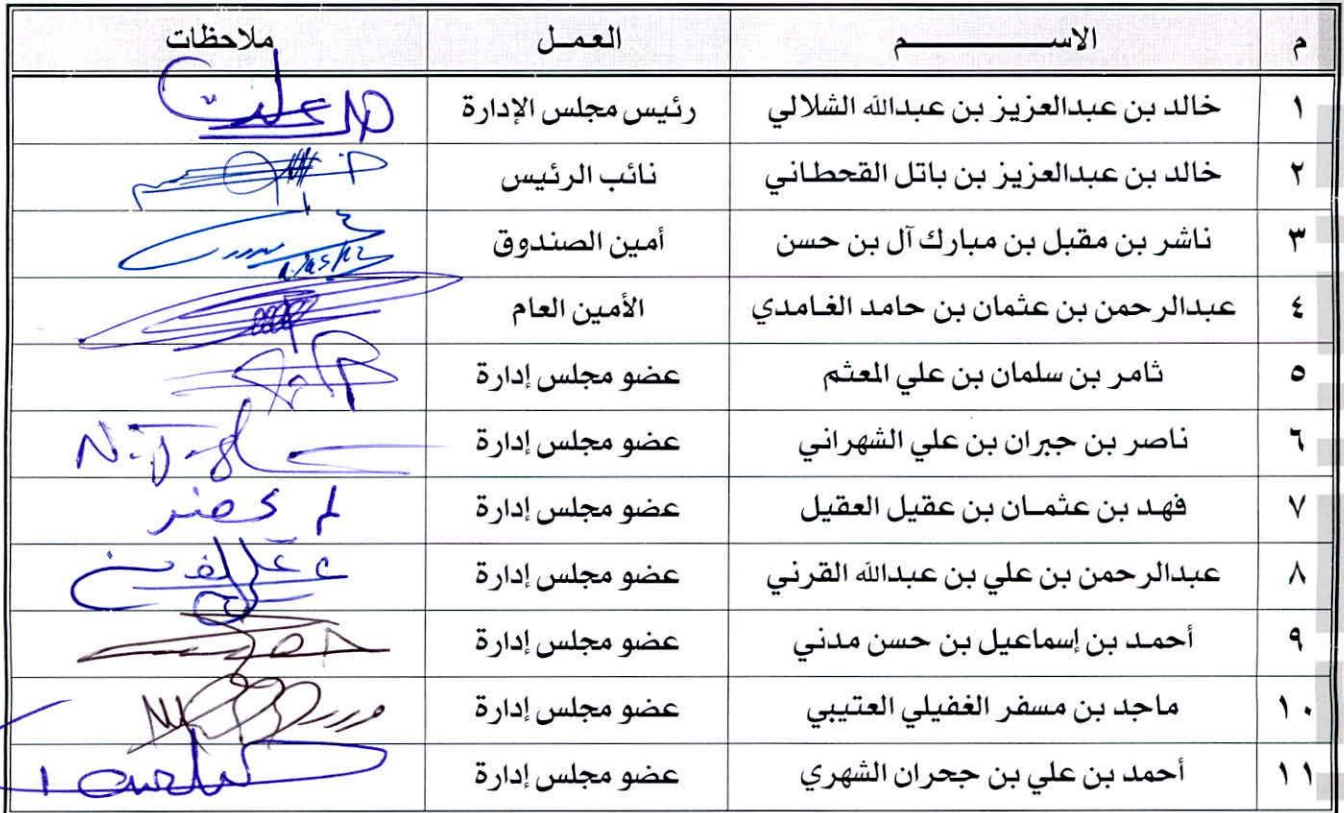 م الاســـــــــم العمـل ملاحظات
١ خالد بن عبدالعزيز بن عبدالله الشلالي رئيس مجلس الإدارة
٢ خالد بن عبدالعزيز بن باتل القحطاني نائب الرئيس
٣ ناشر بن مقبل بن مبارك آل بن حسن أمين الصندوق
٤ عبدالرحمن بن عثمان بن حامد الغـامدي الأمين العام
٥ ثامر بن سلمان بن علي المعثم عضو مجلس إدارة
٦ ناصر بن جبران بن علي الشهراني عضو مجلس إدارة
٧ فهـد بن عثمـان بن عقيل العقيل عضو مجلس إدارة لم يحضر
٨ عبدالرحمن بن علي بن عبدالله القرني عضو مجلس إدارة
٩ أحمـد بن إسماعيل بن حسن مدني عضو مجلس إدارة
١٠ ماجد بن مسفر الغفيلي العتيبي عضو مجلس إدارة
١١ أحمد بن علي بن جحران الشهري عضو مجلس إدارة